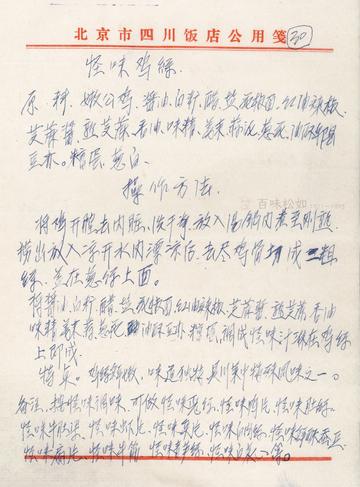 北京市四川饭店公用笺
30
怪味鸡絲
原料：嫩公鸡、酱油、白糖、醋、盐、花椒面、红油辣椒、
芝蔴酱、熟芝蔴、香油、味精、姜末、蒜泥、葱花、油酥
豆朩。糖蛋、葱白。
操作方法
百味松如
将鸡开膛去内脏，洗干净，放入汤锅内煮至刚熟
捞出放入凉开水内漂凉后，去尽鸡骨切成二粗
絲，盖在葱絲上面。
将酱油、白糖、醋、盐、花椒面、红油辣椒、芝蔴酱、熟芝蔴、香油
味精、姜末、蒜、葱花、油酥豆朩、调成怪味汁淋在鸡絲
上即成。
特点：鸡絲鲜嫩，味道独特，是川菜中特殊风味之一。
备注：按怪味调味，可做怪味兔丁、怪味鸡片、怪味肚絲、
怪味牛肚、怪味虾片、怪味鱼片、怪味白肉絲、怪味酥蚕豆
怪味扇片、怪味牛筋、怪味笋絲、怪味白等。